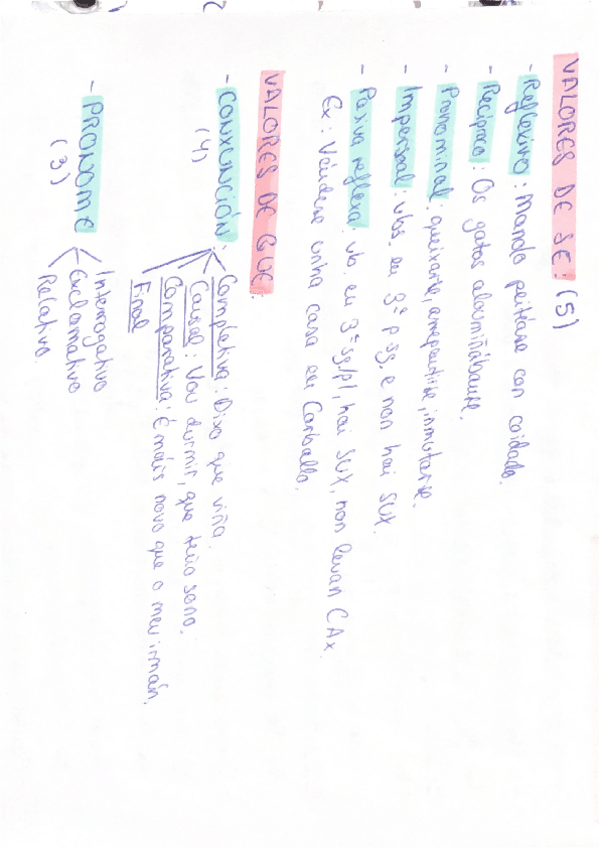 VALORES DE SE: (5)
- Reflexivo: Manolo peitéase con coidado.
- Recíproco: Os gatos aloumiñábanse.
- Pronominal: queixarse, arrepentirse, inmutarse.
- Impersoal: vbs. en 3ª p sg. e non hai SUX.
- Pasiva reflexa: vb. en 3ª sg/pl, hai SUX, non levan CAx.
Ex: Véndese unha casa en Carballo.
VALORES DE QUE:
- CONXUNCIÓN: Completiva: Dixo que viña.
(4) Causal: Vou durmir, que teño sono.
Comparativa: É máis novo que o meu irmán.
Final
- PRONOME Interrogativo
(3) Exclamativo
Relativo